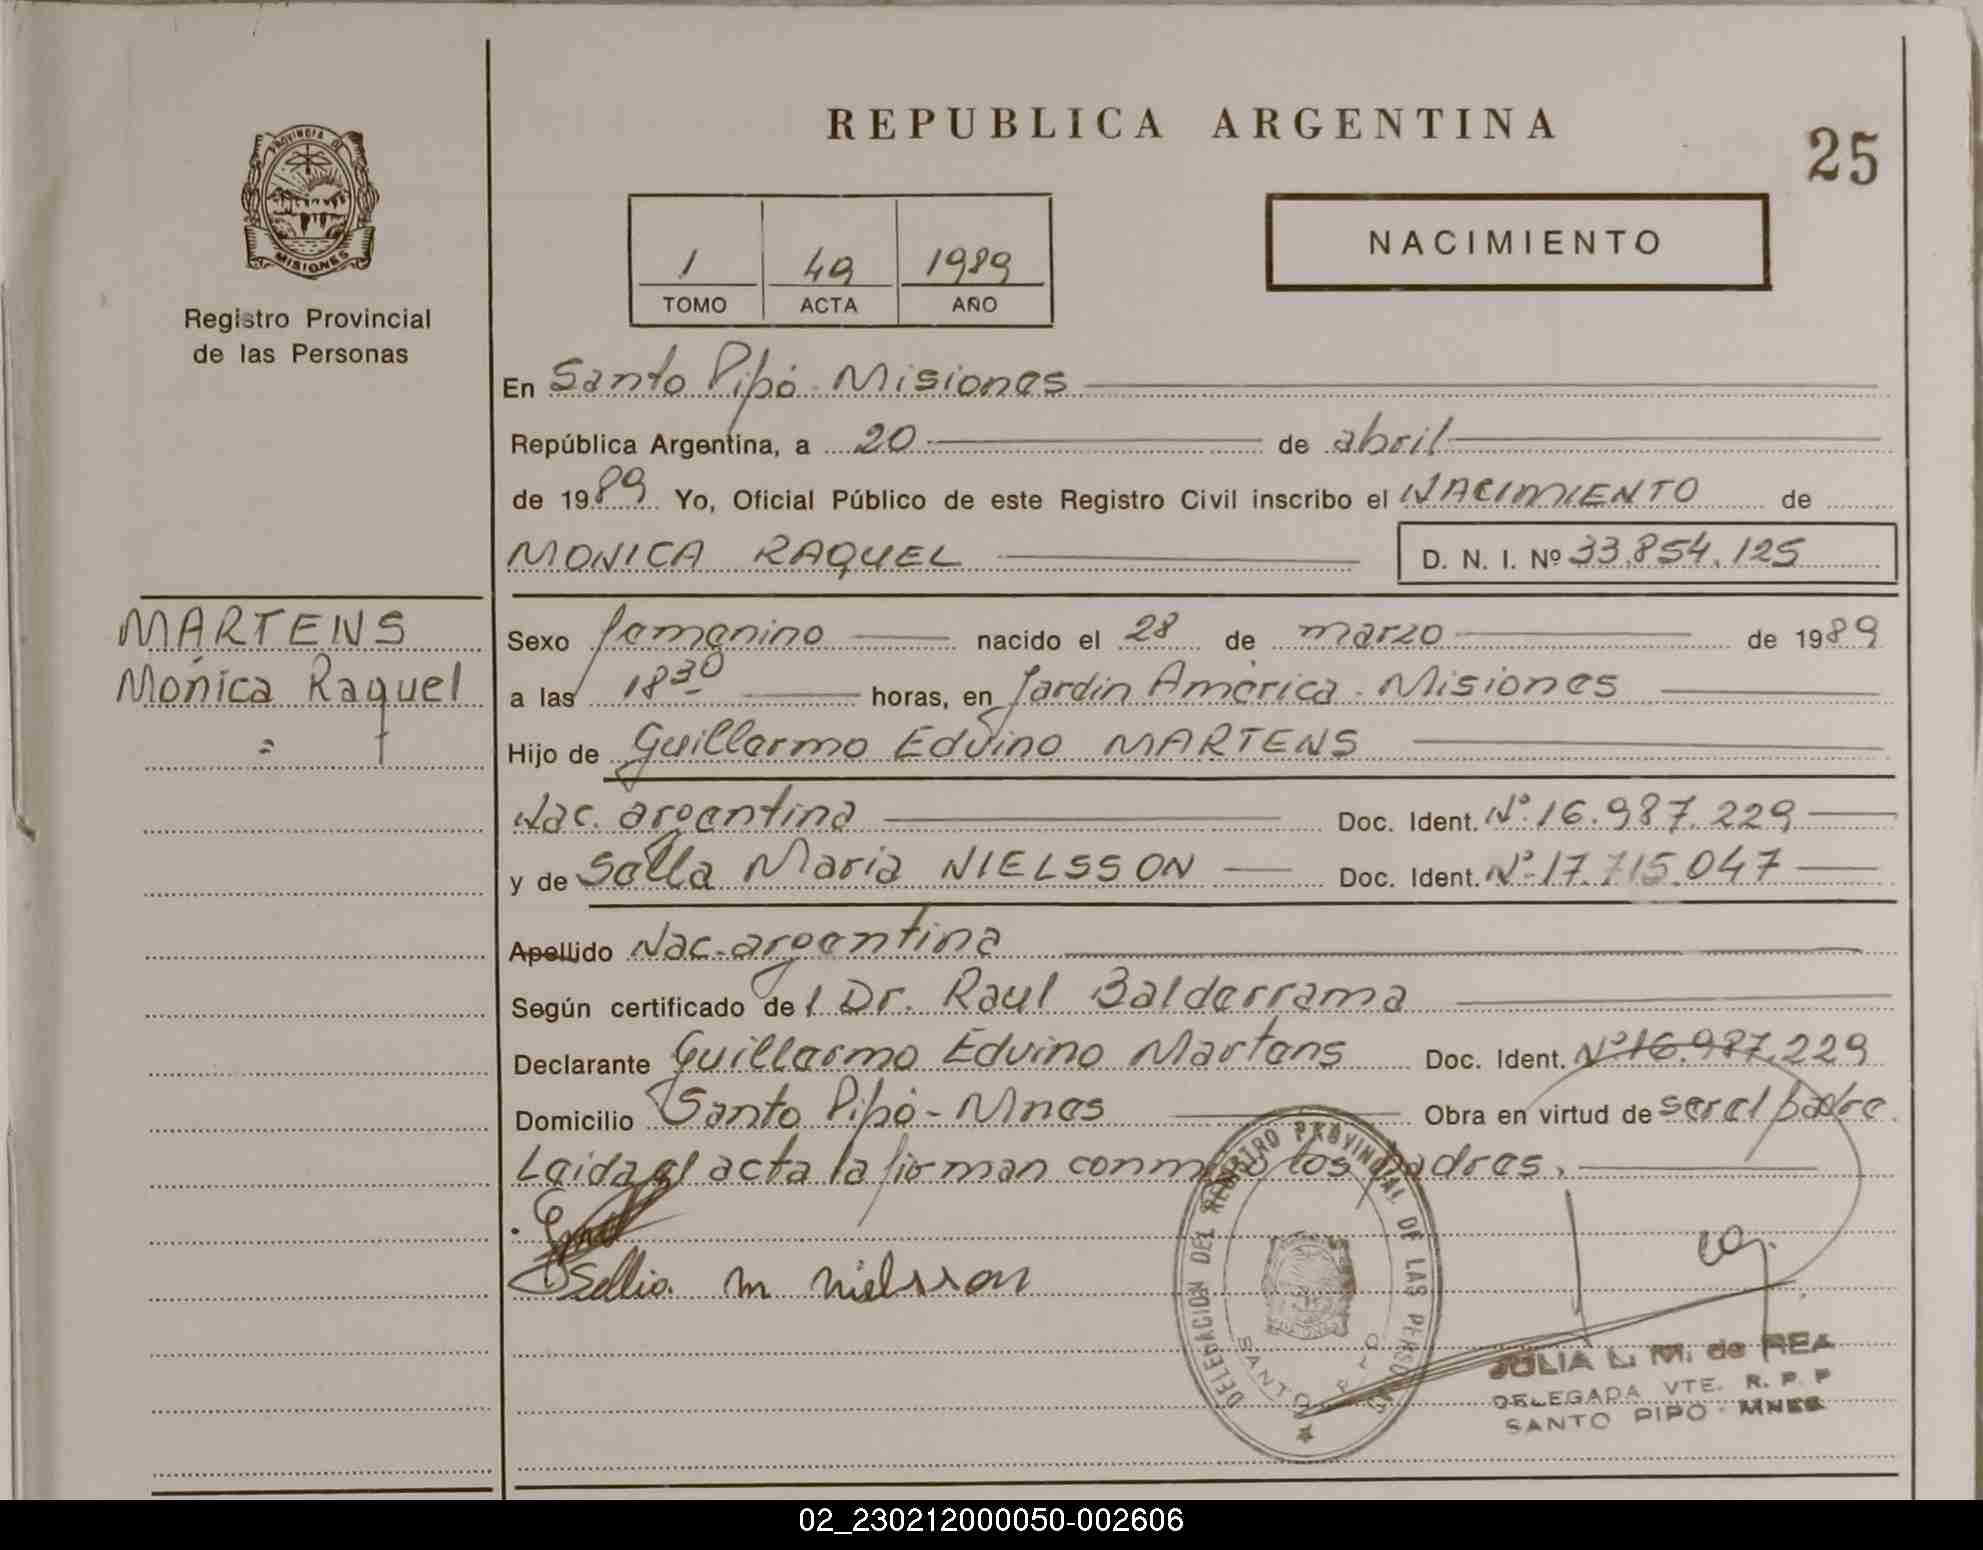 REPUBLICA ARGENTINA
25
PROVINCIA DE
MISIONES
Registro Provincial
de las Personas
1 49 1989
TOMO ACTA AÑO
NACIMIENTO
En Santo Pipó - Misiones
República Argentina, a 20 de abril
de 1989 Yo, Oficial Público de este Registro Civil inscribo el NACIMIENTO de
MONICA RAQUEL D. N. I. Nº 33.854.125
MARTENS
Mónica Raquel
Sexo femenino nacido el 28 de marzo de 1989
a las 18 30 horas, en Jardín América - Misiones
Hijo de Guillermo Edvino MARTENS
Nac. argentina Doc. Ident. Nº 16.987.229
y de Selia María NIELSSON Doc. Ident. Nº 17.715.047
Apellido Nac. argentina
Según certificado del Dr. Raul Balderrama
Declarante Guillermo Edvino Martens Doc. Ident. Nº 16.987.229
Domicilio Santo Pipó - Mnes Obra en virtud de ser el padre.
Leida el acta la firman conmigo los padres.
Sellia. M Nielsson
DELEGACION DEL REGISTRO PROVINCIAL DE LAS PERSONAS
SANTO PIPO
JULIA L. M. de REA
DELEGADA VTE. R. P. P
SANTO PIPO - MNES
02_230212000050-002606